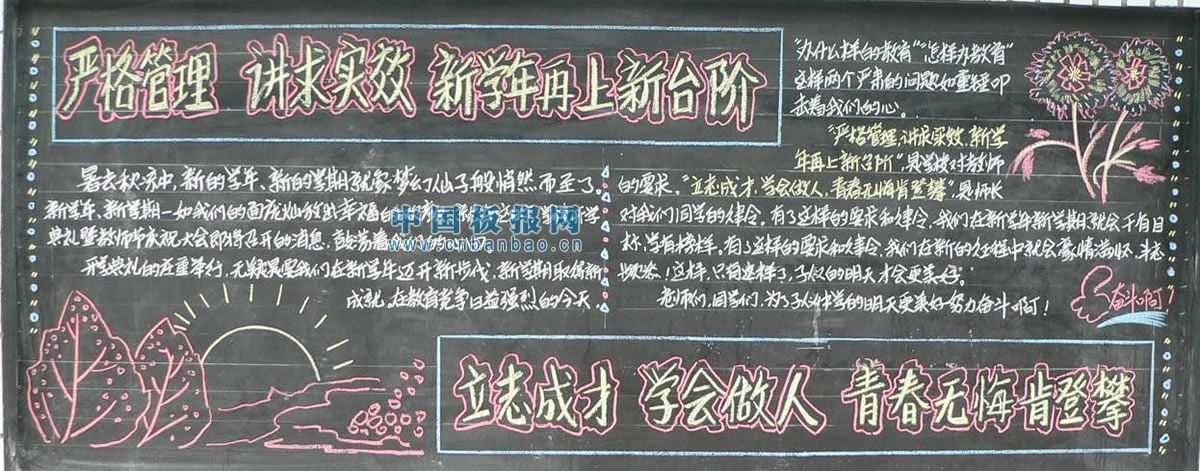 严格管理 讲求实效 新学年再上新台阶
暑去秋来中,新的学年、新的学期就象梦幻仙子般悄然而至了。
新学年、新学期一如我们的面庞灿放出幸福的
典礼暨教师节庆祝大会即将召开的消息,
开学典礼的庄重举行,无疑是要我们在新学年迈开新步伐,新学期取得新
成就。在教育竞争日益强烈的今天
“办什么样的教育”“怎样办教育”
这样两个严肃的问题如重锤叩
击着我们的心。
“严格管理,讲求实效,新学
年再上新台阶”,是学校对教师
的要求。“立志成才,学会做人,青春无悔肯登攀”,是师长
对我们同学的律令。有了这样的要求和律令,我们在新学年新学期就会干有目
标,学有榜样。有了这样的要求和律令,我们在新的征程中就会豪情满怀、斗志
这样,只有这样了,的明天才会更美好。
老师们,同学们,为了中学的明天更美好努力奋斗啊!
奋斗啊!
立志成才 学会做人 青春无悔肯登攀
中国板报网
www.cnbanbao.cn